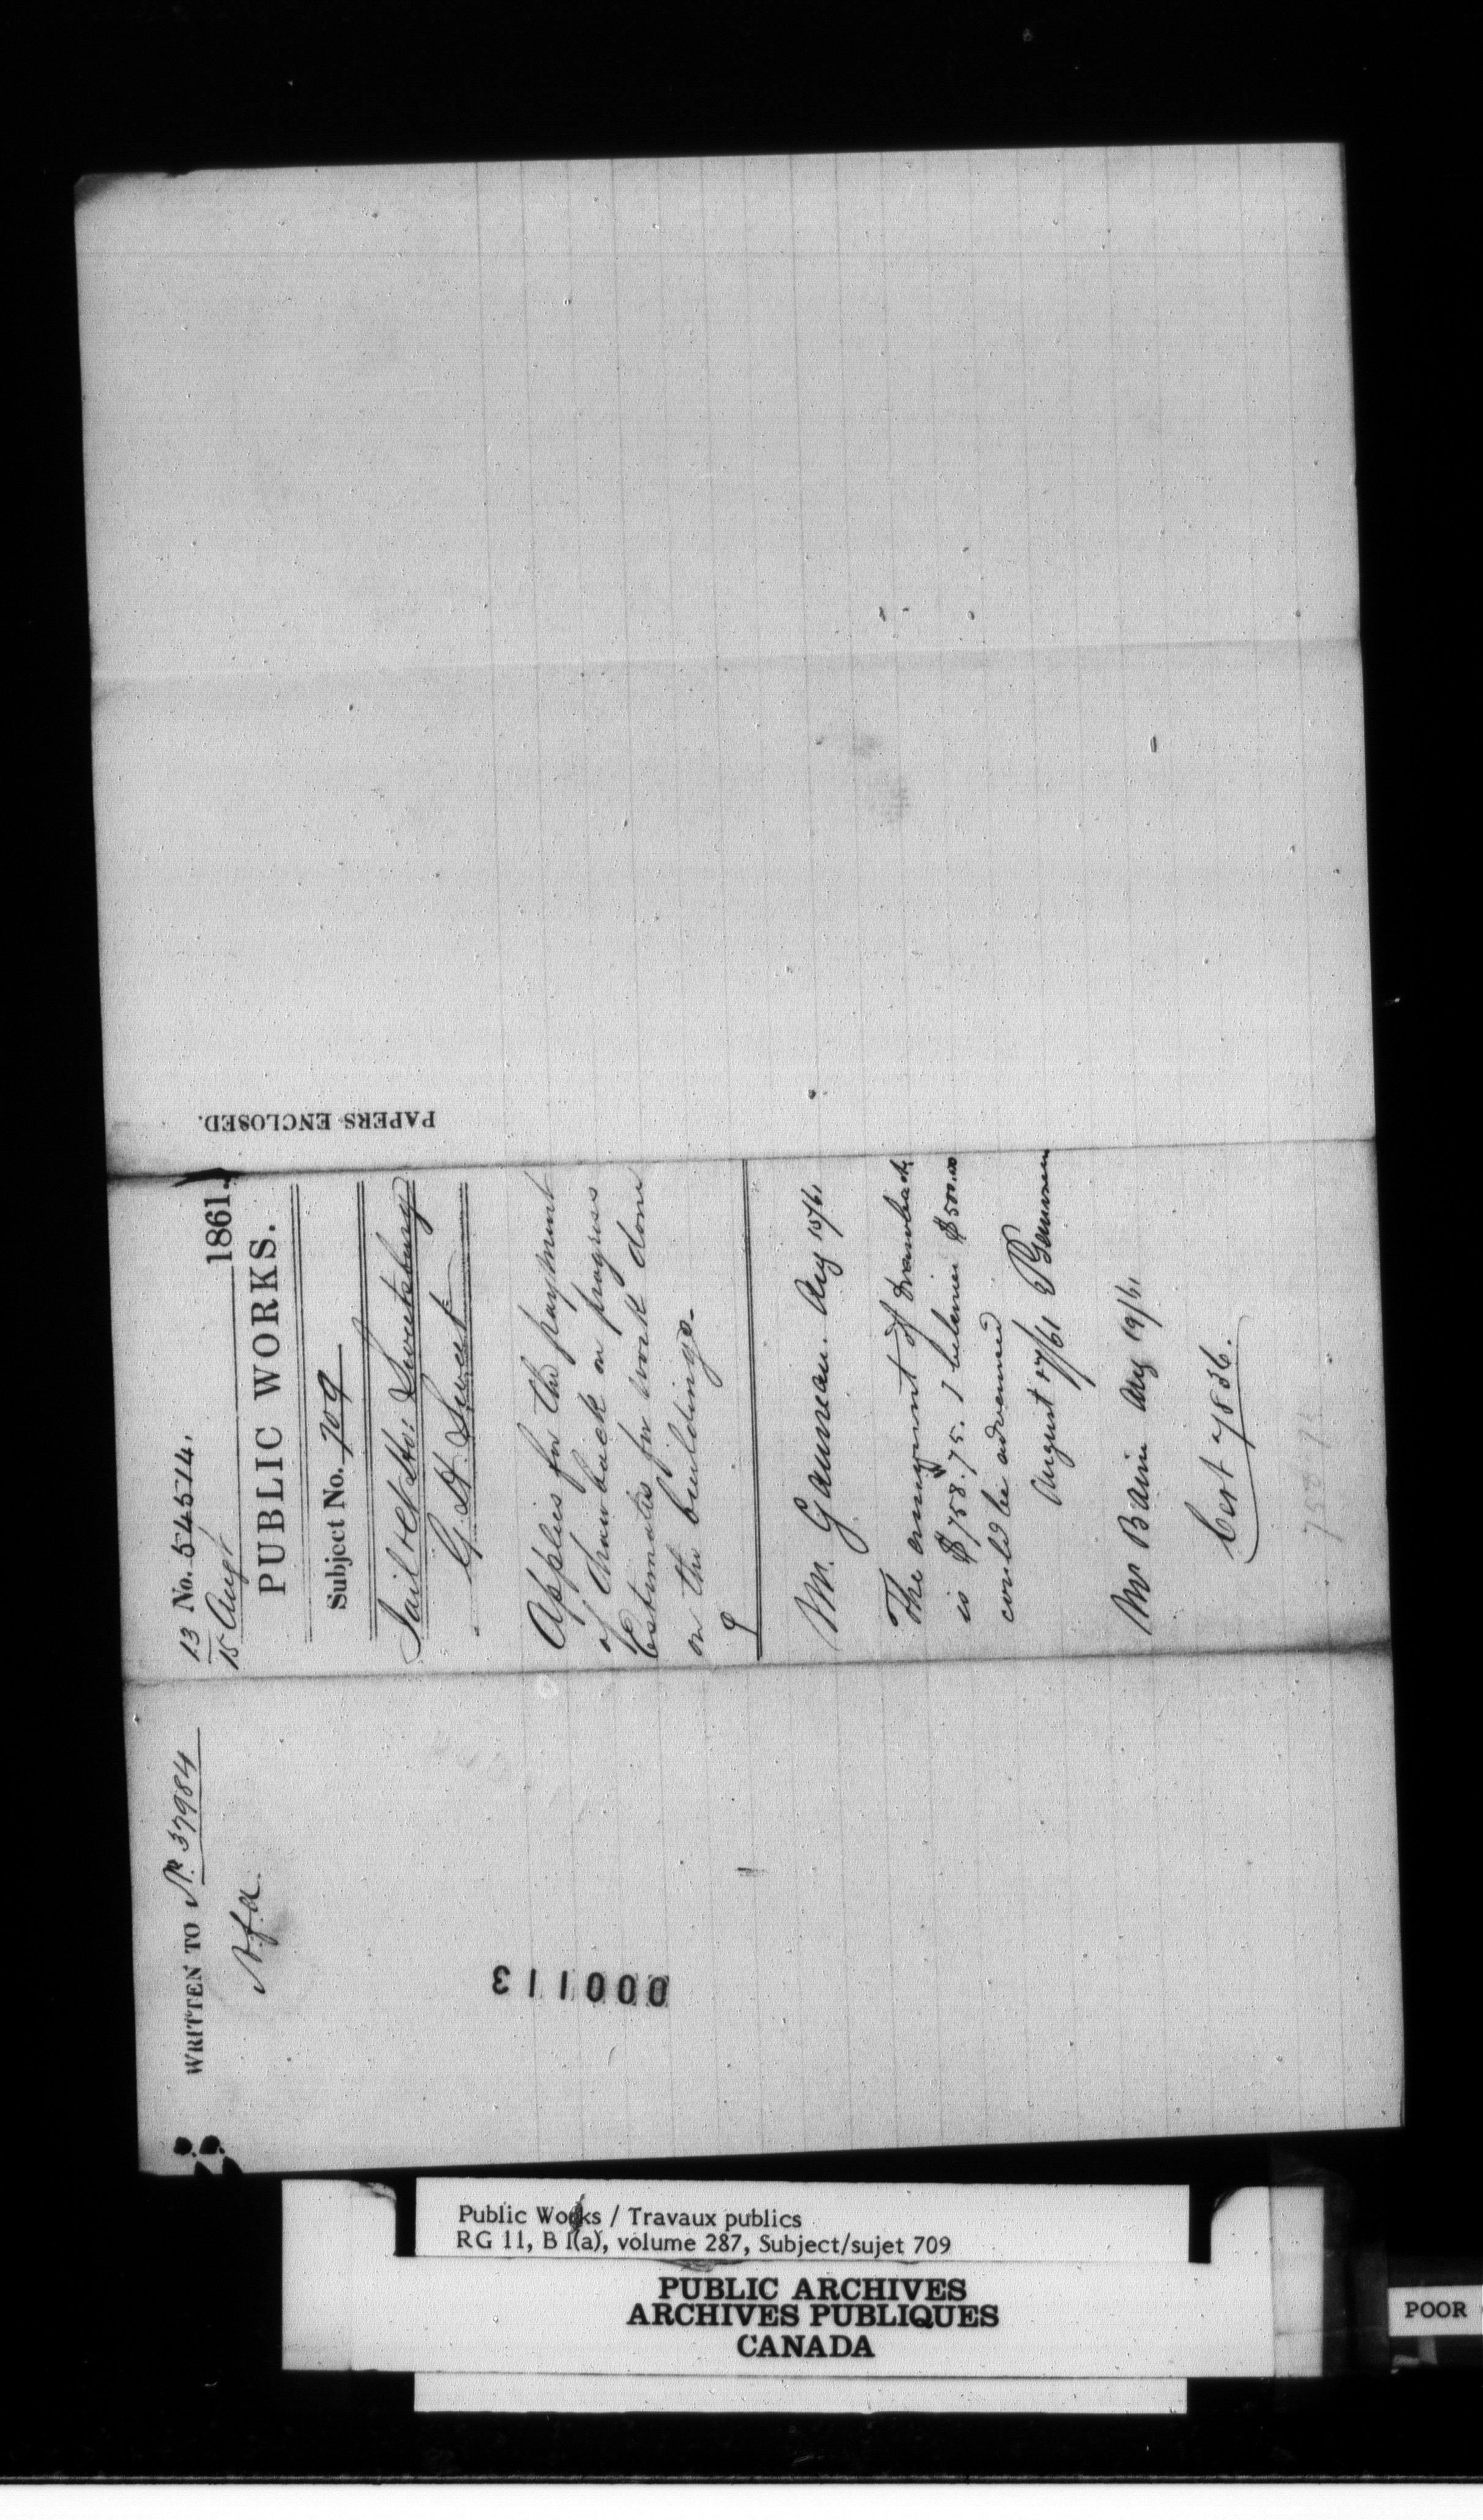 13 No. 54514.
15 Augt 1861.
PUBLIC WORKS.
Subject No. 709
Jail & Ct Ho: Sweetsburg
G. H. Sweet
Applies for the payment
of drawback on progress
Estimates for work done
on the buildings.
Mr. Gauvreau. Aug 15/61
The amount of drawback
is $758.75. I believe $500.00
could be advanced
August 17/61 PGauvreau
Mr Bain Aug 19/61
Cert 7836.
758 75
PAPERS ENCLOSED.
WRITTEN TO No. 37984
N.f.a.
000113
Public Works / Travaux publics
RG 11, B 1(a), volume 287, Subject/sujet 709
PUBLIC ARCHIVES
ARCHIVES PUBLIQUES
CANADA
POOR